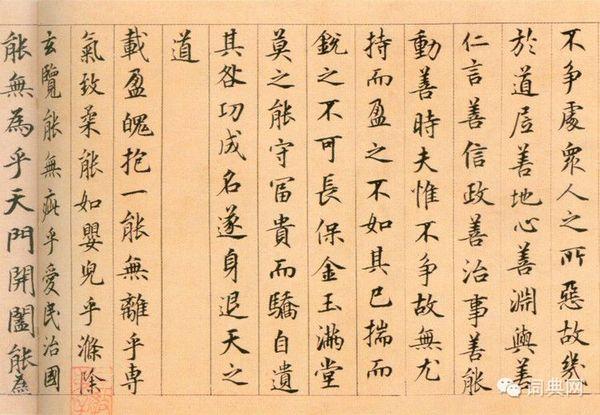 不争處眾人之所惡故幾
於道居善地心善淵與善
仁言善信政善治事善能
動善時夫惟不争故無尤
持而盈之不如其已揣而
銳之不可長保金玉滿堂
莫之能守富貴而驕自遺
其咎功成名遂身退天之
道
載盈魄抱一能無離乎専
氣致柔能如嬰兒乎滌除
玄覽能無疵乎愛民治國
能無為乎天門開闔能為
词典网